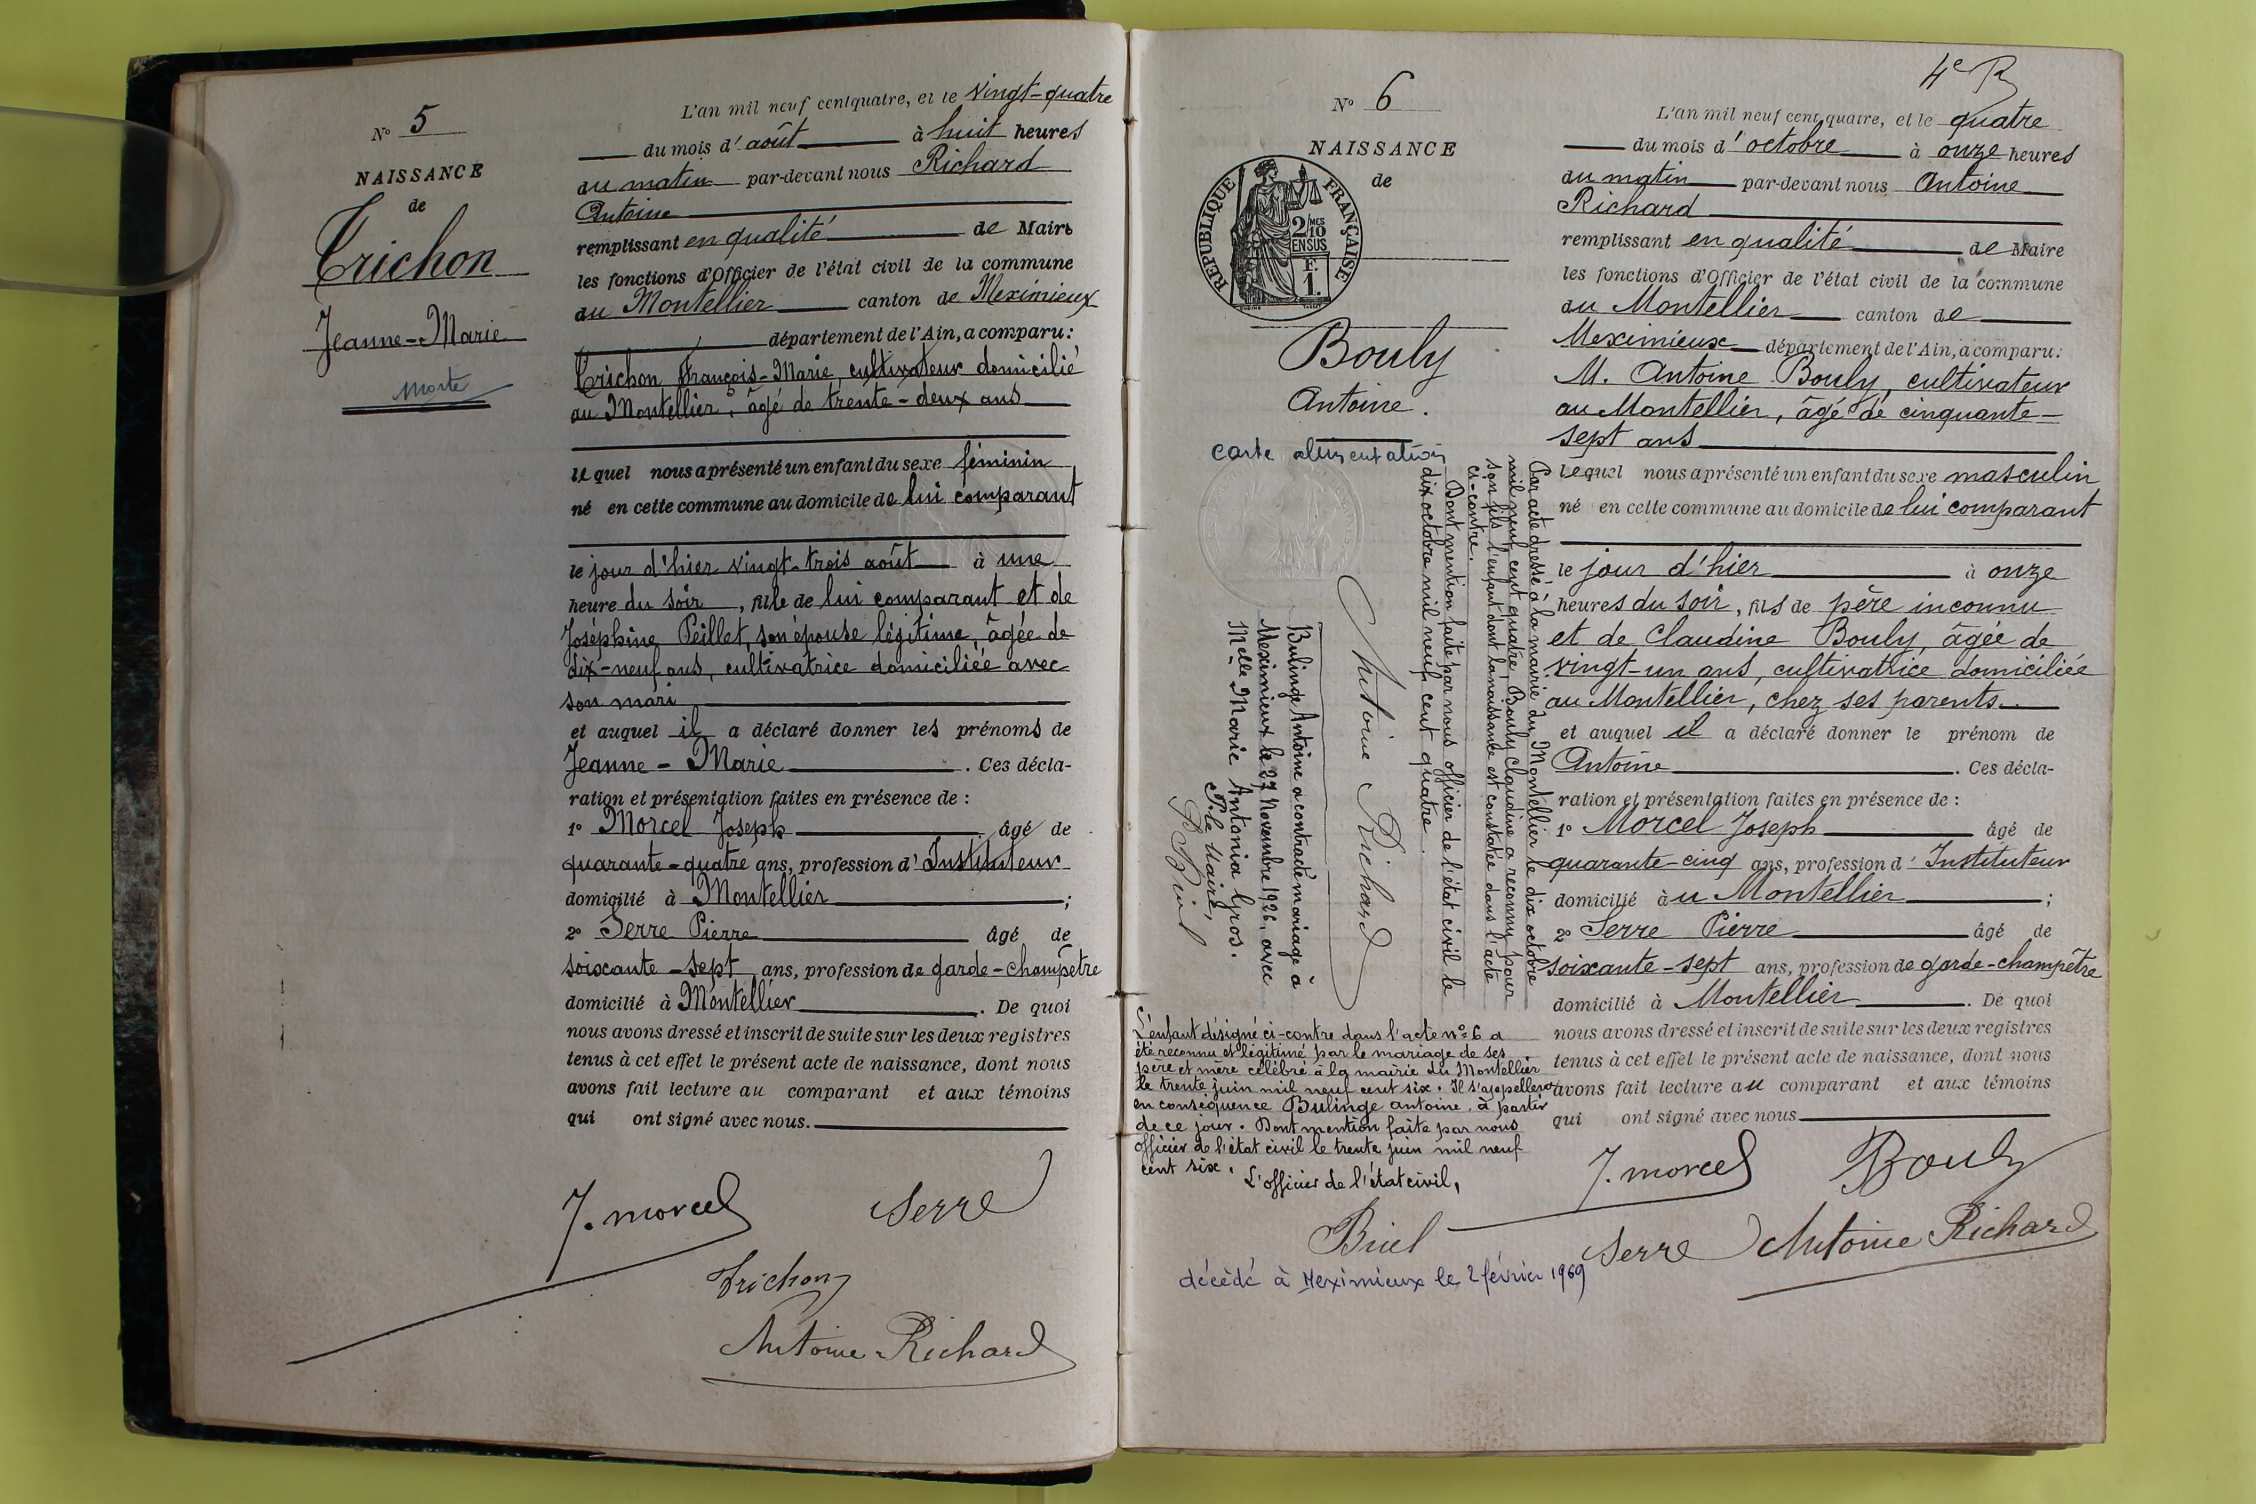 N° 5
NAISSANCE
de
Trichon
Jeanne-Marie
Morte
L'an mil neuf cent quatre, et le vingt-quatre
du mois d'août à huit heures
du matin par-devant nous Richard
Antoine
remplissant en qualité de Maire
les fonctions d'Officier de l'état civil de la commune
du Montellier canton de Meximieux
département de l'Ain, a comparu:
Trichon François-Marie, cultivateur domicilié
au Montellier, âgé de trente-deux ans
lequel nous a présenté un enfant du sexe féminin
né en cette commune au domicile de lui comparant
le jour d'hier vingt-trois août à une
heure du soir, fille de lui comparant et de
Joséphine Peillet, son épouse légitime, âgée de
dix-neuf ans, cultivatrice domiciliée avec
son mari
et auquel il a déclaré donner les prénoms de
Jeanne-Marie. Ces décla-
ration et présentation faites en présence de :
1° Morcel Joseph âgé de
quarante-quatre ans, profession d'Instituteur
domicilié à Montellier ;
2° Serre Pierre âgé de
soixante-sept ans, profession de garde-champêtre
domicilié à Montellier. De quoi
nous avons dressé et inscrit de suite sur les deux registres
tenus à cet effet le présent acte de naissance, dont nous
avons fait lecture au comparant et aux témoins
qui ont signé avec nous.
J. Morcel Serre
Trichon
Antoine Richard
4e R
N° 6
NAISSANCE
de
RÉPUBLIQUE FRANÇAISE
2/10 MES
EN SUS
F.
1.
Bouly
Antoine.
carte alimentation
L'an mil neuf cent quatre, et le quatre
du mois d'octobre à onze heures
du matin par-devant nous Antoine
Richard
remplissant en qualité de Maire
les fonctions d'Officier de l'état civil de la commune
du Montellier canton de
Meximieux département de l'Ain, a comparu:
M. Antoine Bouly, cultivateur
au Montellier, âgé de cinquante-
sept ans
lequel nous a présenté un enfant du sexe masculin
né en cette commune au domicile de lui comparant
le jour d'hier à onze
heures du soir, fils de père inconnu
et de Claudine Bouly, âgée de
vingt-un ans, cultivatrice domiciliée
au Montellier, chez ses parents.
et auquel il a déclaré donner le prénom de
Antoine. Ces décla-
ration et présentation faites en présence de :
1° Morcel Joseph âgé de
quarante-cinq ans, profession d'Instituteur
domicilié au Montellier ;
2° Serre Pierre âgé de
soixante-sept ans, profession de garde-champêtre
domicilié à Montellier. De quoi
nous avons dressé et inscrit de suite sur les deux registres
tenus à cet effet le présent acte de naissance, dont nous
avons fait lecture au comparant et aux témoins
qui ont signé avec nous
J. Morcel Bouly
Serre Antoine Richard
Par acte dressé à la mairie du Montellier le dix octobre
mil neuf cent quatre, Bouly Claudine a reconnu pour
son fils l'enfant dont la naissance est constatée dans l'acte
ci-contre.
Dont mention faite par nous officier de l'état civil le
dix octobre mil neuf cent quatre.
Antoine Richard
Bulinge Antoine a contracté mariage à
Meximieux le 27 Novembre 1926, avec
Melle Marie Antonia Gros.
P. le Maire,
L'enfant désigné ci-contre dans l'acte n° 6 a
été reconnu et légitimé par le mariage de ses
père et mère célébré à la mairie du Montellier
le trente juin mil neuf cent six. Il s'appellera
en conséquence Bulinge Antoine, à partir
de ce jour. Dont mention faite par nous
officier de l'état civil le trente juin mil neuf
cent six. L'officier de l'état civil,
Briel
décédé à Meximieux le 2 février 1969